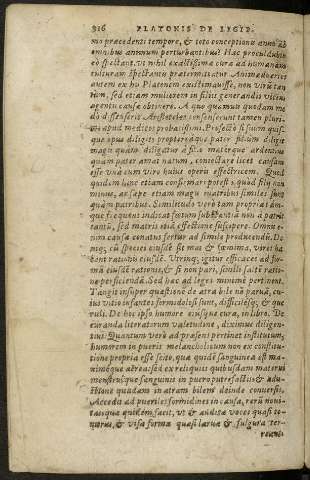 316 PLATONIS DE LEGIB.
mo præcedenti tempore, & toto conceptionis anno ab
omnibus animum perturbantibus? Hæc procul dubio
eò spectant, vt nihil exactissima cura ad humanam
culturam spectantis prætermittatur. Animaduertes
autem ex hu Platonem existimauisse, non virũ tan
tum, sed etiam mulierem in filiis generandis vicem
agentis causæ obtinere. A quo quamuis quodam mo
do dissenserit Aristoteles consenserunt tamen pluri-
mi apud medicos probatissimi. Profectò si suum quis-
que opus diligit: propterea que pater filium diligit
magis quàm diligatur à filio: mater que ardentius
quàm pater amat natum, coniectare licet causam
esse vnà cum viro huius operis effectricem. Quod
quidem hinc etiam confirmari potest, quod filij non
minus, ac sæpe etiam magis matribus similes sunt
quàm patribus. Similitudo verò tam propria tám-
que frequens indicat fœtum substantiã non à patre
tantũ, sed matris etiã effectione suscipere. Omnis e-
nim causa conatus fertur ad simile producendũ. De
niq; cũ species eiusdẽ sit maris & fœminæ, vires ha
bent rationis eiusdẽ. Vtrinq; igitur efficaces ad for-
mã eiusdẽ rationis, & si non pari, simili saltẽ ratio-
ne perficiendã. Sed hæc ad leges minimè pertinent.
Tangit insuper quæstionẽ de atra bile nõ paruã, cu-
ius vitio infantes formidolosi sunt, difficilésq; & que
ruli. De hoc ipso humore eiúsque cura, in libro De
curanda literatorum valetudine, diximus diligen-
tius. Quantum verò ad præsens pertinet institutum,
humorem in pueris melancholicum non ex constitu-
tione propria esse scito, quæ quidẽ sanguinea est ma
nimeque aërea: sed ex reliquiis quibusdam materni
menstruique sanguinis in puero putrefactis & adu-
stione quadam in atram bilem deinde conuersis.
Accedit ad pueriles formidines in causa, rerũ noui-
tas: quæ quidem facit, vt & auditæ voces quasi to-
nitrus, & visæ formæ quasi laruæ & fulgura ter-
reant